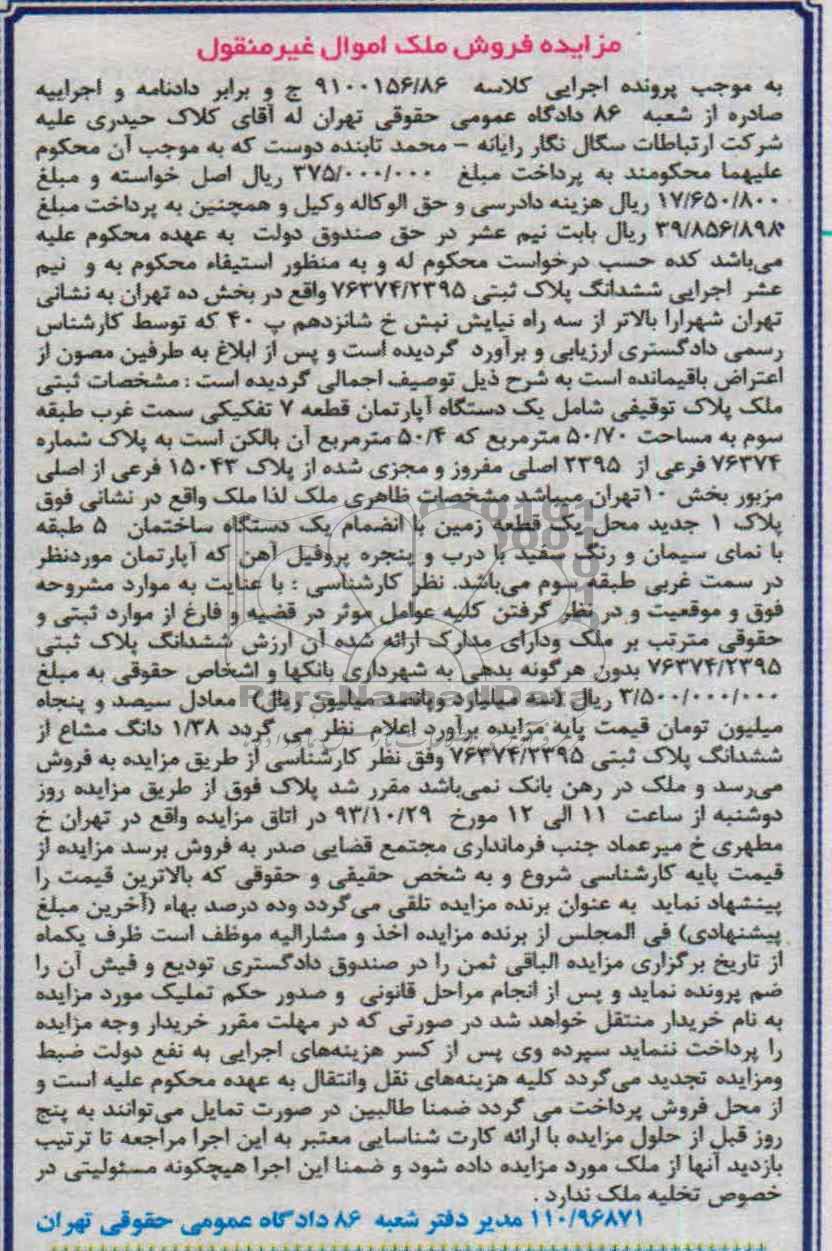 مزایده فروش ملک اموال غیرمنقول
به موجب پرونده اجرایی کلاسه ۹۱۰۰۱۵۶/۸۶ ج و برابر دادنامه و اجراییه
صادره از شعبه ۸۶ دادگاه عمومی حقوقی تهران له آقای کلاک حیدری علیه
شرکت ارتباطات سگال نگار رایانه – محمد تابنده دوست که به موجب آن محکوم
علیهما محکومند به پرداخت مبلغ ۳۷۵/۰۰۰/۰۰۰ ریال اصل خواسته و مبلغ
۱۷/۶۵۰/۸۰۰ ریال هزینه دادرسی و حق الوکاله وکیل و همچنین به پرداخت مبلغ
۳۹/۸۵۶/۸۹۸ ریال بابت نیم عشر در حق صندوق دولت به عهده محکوم علیه
می‌باشد کده حسب درخواست محکوم له و به منظور استیفاء محکوم به و نیم
عشر اجرایی ششدانگ پلاک ثبتی ۷۶۳۷۴/۲۳۹۵ واقع در بخش ده تهران به نشانی
تهران شهرارا بالاتر از سه راه نیایش نبش خ شانزدهم پ ۴۰ که توسط کارشناس
رسمی دادگستری ارزیابی و برآورد گردیده است و پس از ابلاغ به طرفین مصون از
اعتراض باقیمانده است به شرح ذیل توصیف اجمالی گردیده است : مشخصات ثبتی
ملک پلاک توقیفی شامل یک دستگاه آپارتمان قطعه ۷ تفکیکی سمت غرب طبقه
سوم به مساحت ۵۰/۷۰ مترمربع که ۵۰/۴ مترمربع آن بالکن است به پلاک شماره
۷۶۳۷۴ فرعی از ۲۳۹۵ اصلی مفروز و مجزی شده از پلاک ۱۵۰۴۳ فرعی از اصلی
مزبور بخش ۱۰تهران میباشد مشخصات ظاهری ملک لذا ملک واقع در نشانی فوق
پلاک ۱ جدید محل یک قطعه زمین با انضمام یک دستگاه ساختمان ۵ طبقه
با نمای سیمان و رنگ سفید با درب و پنجره پروفیل آهن که آپارتمان موردنظر
در سمت غربی طبقه سوم می‌باشد. نظر کارشناسی : با عنایت به موارد مشروحه
فوق و موقعیت و در نظر گرفتن کلیه عوامل موثر در قضیه و فارغ از موارد ثبتی و
حقوقی مترتب بر ملک ودارای مدارک ارائه شده آن ارزش ششدانگ پلاک ثبتی
۷۶۳۷۴/۲۳۹۵ بدون هرگونه بدهی به شهرداری بانکها و اشخاص حقوقی به مبلغ
۳/۵۰۰/۰۰۰/۰۰۰ ریال (سه میلیارد وپانصد میلیون ریال) معادل سیصد و پنجاه
ParsNamadData
میلیون تومان قیمت پایه مزایده برآورد اعلام نظر می گردد ۱/۳۸ دانگ مشاع از
ششدانگ پلاک ثبتی ۷۶۳۷۴/۲۳۹۵ وفق نظر کارشناسی از طریق مزایده به فروش
می‌رسد و ملک در رهن بانک نمی‌باشد مقرر شد پلاک فوق از طریق مزایده روز
دوشنبه از ساعت ۱۱ الی ۱۲ مورخ ۹۳/۱۰/۲۹ در اتاق مزایده واقع در تهران خ
مطهری خ میرعماد جنب فرمانداری مجتمع قضایی صدر به فروش برسد مزایده از
قیمت پایه کارشناسی شروع و به شخص حقیقی و حقوقی که بالاترین قیمت را
پیشنهاد نماید به عنوان برنده مزایده تلقی می‌گردد وده درصد بهاء (آخرین مبلغ
پیشنهادی) فی المجلس از برنده مزایده اخذ و مشارالیه موظف است ظرف یکماه
از تاریخ برگزاری مزایده الباقی ثمن را در صندوق دادگستری تودیع و فیش آن را
ضم پرونده نماید و پس از انجام مراحل قانونی و صدور حکم تملیک مورد مزایده
به نام خریدار منتقل خواهد شد در صورتی که در مهلت مقرر خریدار وجه مزایده
را پرداخت ننماید سپرده وی پس از کسر هزینه‌های اجرایی به نفع دولت ضبط
ومزایده تجدید می‌گردد کلیه هزینه‌های نقل وانتقال به عهده محکوم علیه است و
از محل فروش پرداخت می گردد ضمنا طالبین در صورت تمایل می‌توانند به پنج
روز قبل از حلول مزایده با ارائه کارت شناسایی معتبر به این اجرا مراجعه تا ترتیب
بازدید آنها از ملک مورد مزایده داده شود و ضمنا این اجرا هیچگونه مسئولیتی در
خصوص تخلیه ملک ندارد .
۱۱۰/۹۶۸۷۱ مدیر دفتر شعبه ۸۶ دادگاه عمومی حقوقی تهران